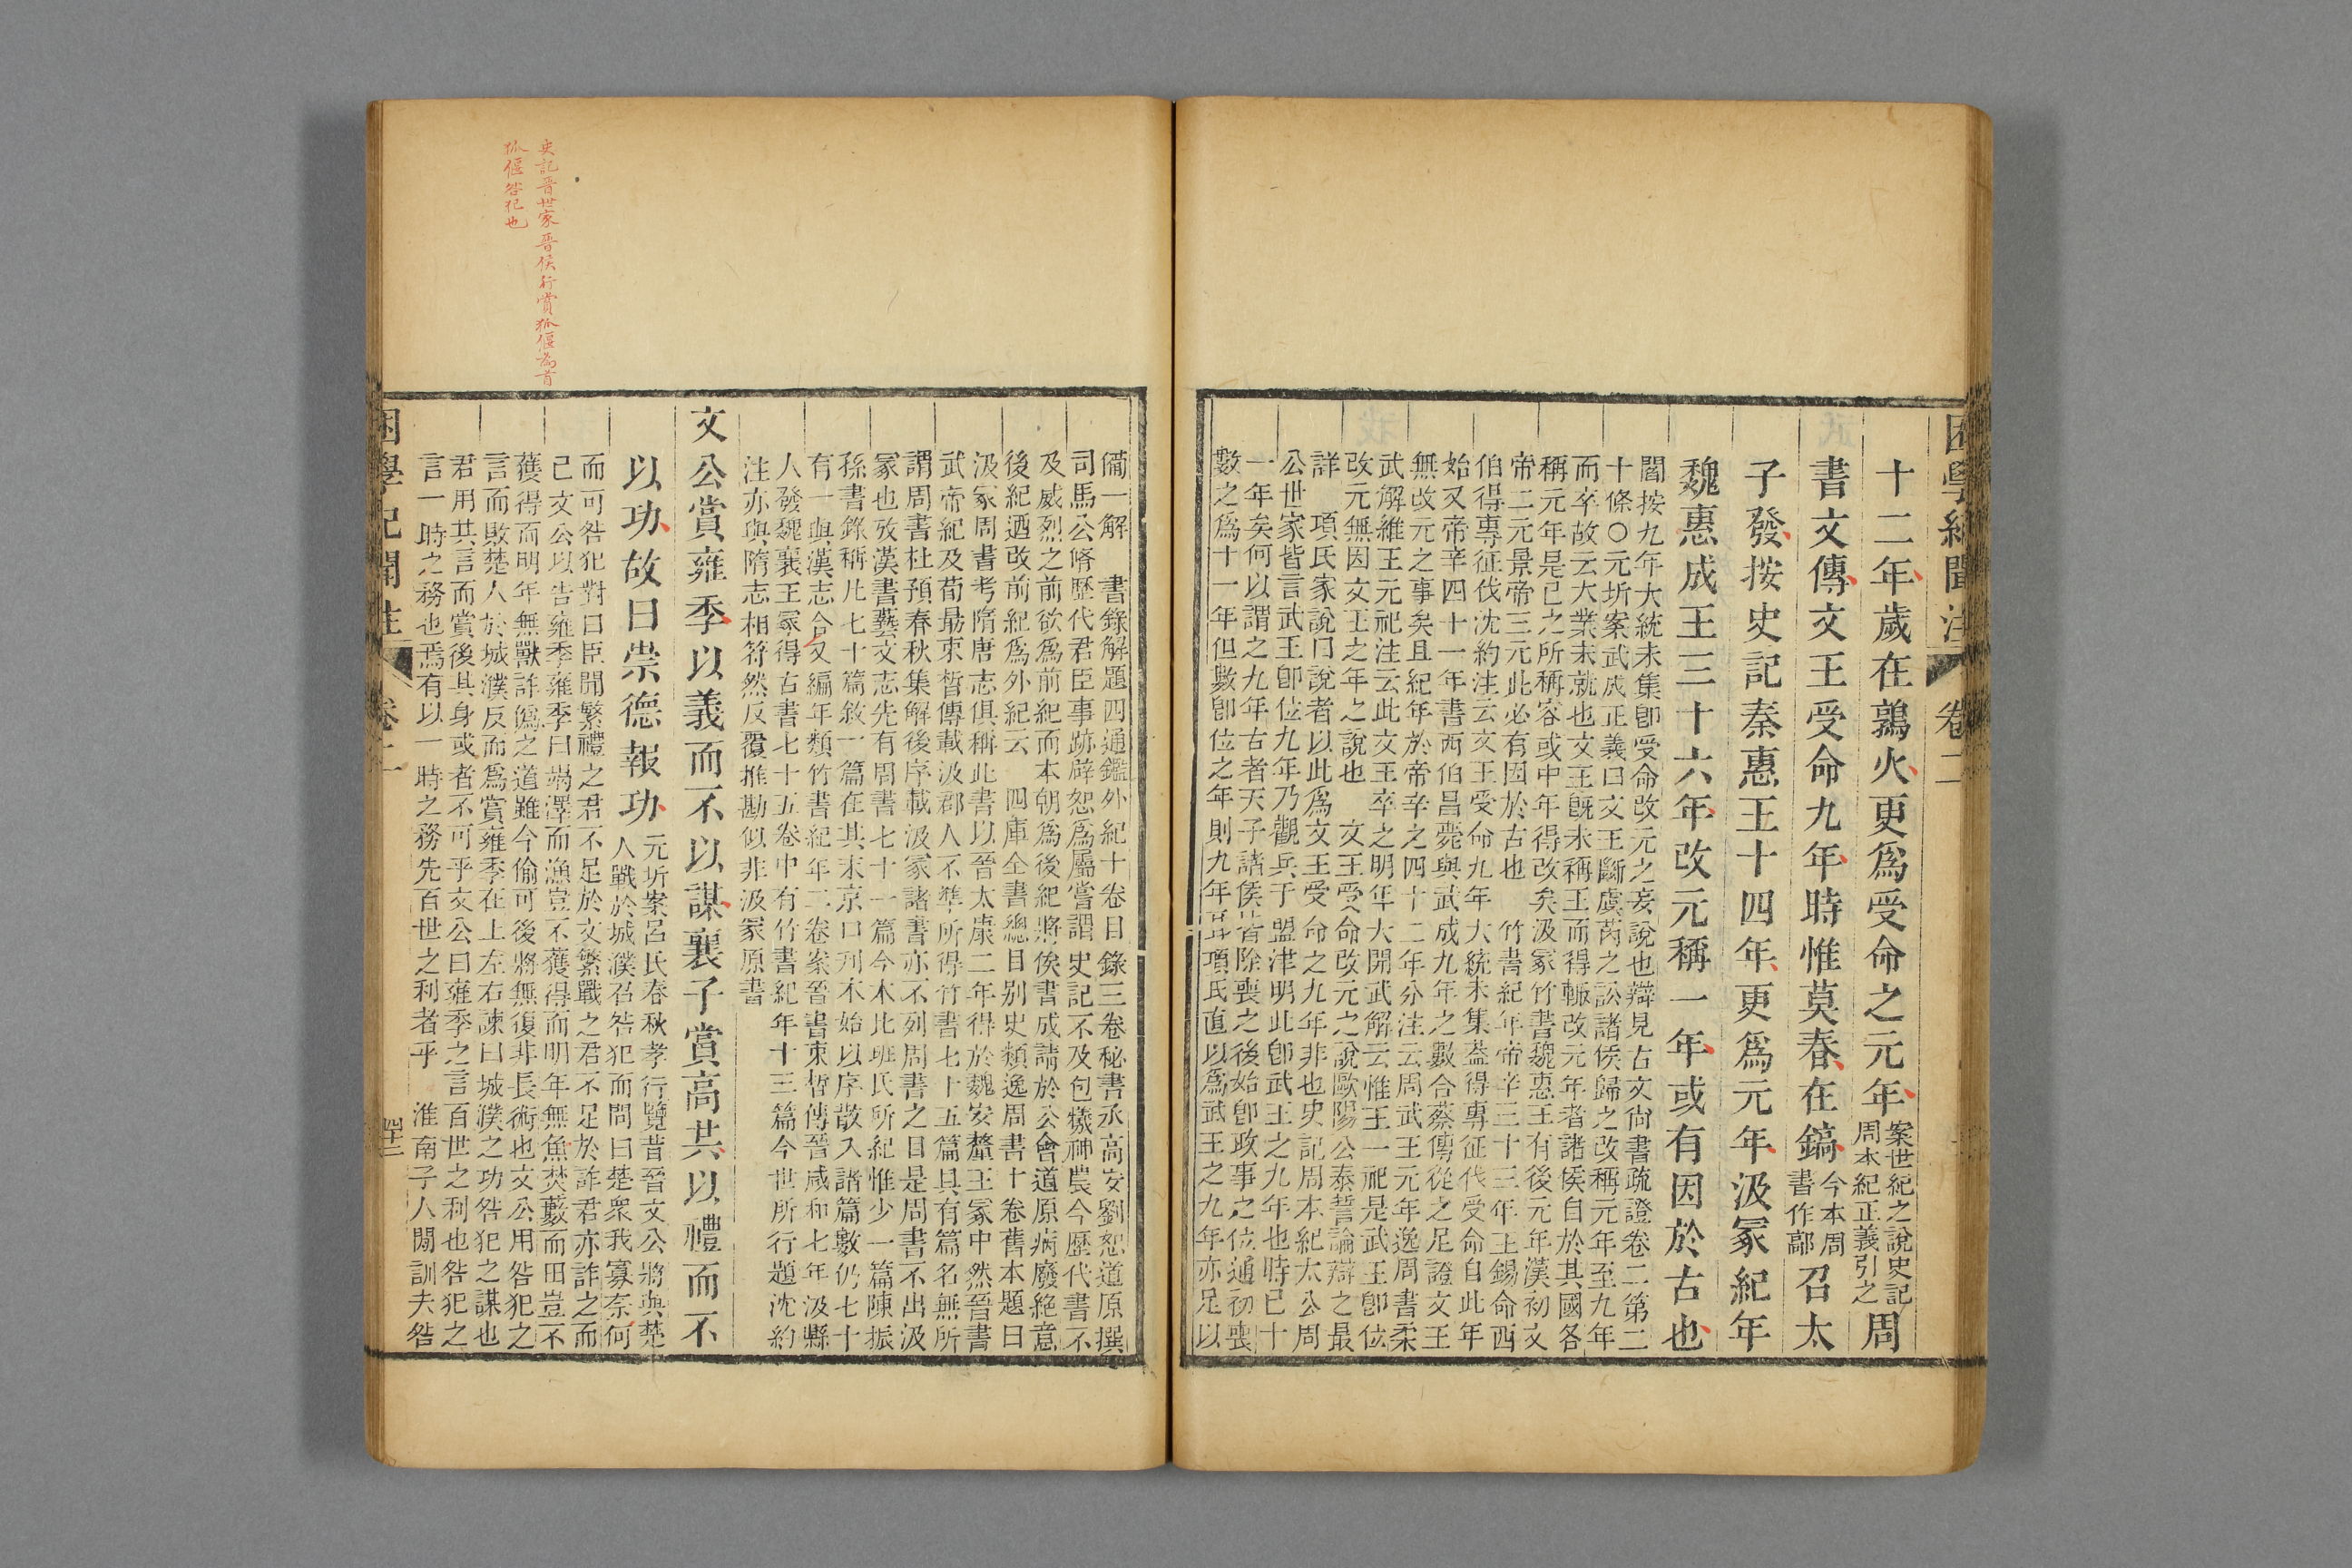 困學紀聞注
卷二
十二年歲在鶉火更爲受命之元年案世紀之說史記周本紀正義引之周
書文傳文王受命九年時惟莫春在鎬今本周書作鄗召太
子發按史記秦惠王十四年更爲元年汲冢紀年
魏惠成王三十六年改元稱一年或有因於古也
閻按九年大統未集卽受命改元之妄說也辯見古文尚書疏證卷二第二
十條○元圻案武成正義曰文王斷虞芮之訟諸侯歸之改稱元年至九年
而卒故云大業未就也文王旣未稱王而得輒改元年者諸侯自於其國各
稱元年是已之所稱容或中年得改矣汲冢竹書魏惠王有後元年漢初文
帝二元景帝三元此必有因於古也 竹書紀年帝辛三十三年王錫命西
伯得專征伐沈約注云文王受命九年大統未集蓋得專征伐受命自此年
始又帝辛四十一年書西伯昌薨與武成九年之數合蔡傳從之足證文王
無改元之事矣且紀年於帝辛之四十二年分注云周武王元年逸周書柔
武解維王元祀注云此文王卒之明年大開武解云惟王一祀是武王卽位
改元無因文王之年之說也 文王受命改元之說歐陽公泰誓論辯之最
詳 項氏家說曰說者以此爲文王受命之九年非也史記周本紀太公周
公世家皆言武王卽位九年乃觀兵于盟津明此卽武王之九年也時已十
一年矣何以謂之九年古者天子諸侯皆除喪之後始卽政事之位通初喪
數之爲十一年但數卽位之年則九年耳項氏直以爲武王之九年亦足以
備一解 書錄解題四通鑑外紀十卷目錄三卷秘書丞高安劉恕道原撰
司馬公脩歷代君臣事跡辟恕爲屬嘗謂史記不及包犧神農今歷代書不
及威烈之前欲爲前紀而本朝爲後紀將俟書成請於公會道原病廢絶意
後紀迺改前紀爲外紀云 四庫全書總目別史類逸周書十卷舊本題曰
汲冢周書考隋唐志俱稱此書以晉太康二年得於魏安釐王冢中然晉書
武帝紀及荀勗束晳傳載汲郡人不準所得竹書七十五篇具有篇名無所
謂周書杜預春秋集解後序載汲冢諸書亦不列周書之目是周書不出汲
冢也攷漢書藝文志先有周書七十一篇今本比班氏所紀惟少一篇陳振
孫書錄稱凡七十篇敘一篇在其末京口刊本始以序散入諸篇數仍七十
有一與漢志合又編年類竹書紀年二卷案晉書束晳傳晉咸和七年汲縣
人發魏襄王冢得古書七十五卷中有竹書紀年十三篇今世所行題沈約
注亦與隋志相符然反覆推勘似非汲冢原書
文公賞雍季以義而不以謀襄子賞高共以禮而不
以功故曰崇德報功元圻案呂氏春秋孝行覽昔晉文公將與楚人戰於城濮召咎犯而問曰楚衆我寡奈何
而可咎犯對曰臣聞繁禮之君不足於文繁戰之君不足於詐君亦詐之而
已文公以告雍季雍季曰竭澤而漁豈不獲得而明年無魚焚藪而田豈不
獲得而明年無獸詐僞之道雖今偷可後將無復非長術也文公用咎犯之
言而敗楚人於城濮反而爲賞雍季在上左右諫曰城濮之功咎犯之謀也
君用其言而賞後其身或者不可乎文公曰雍季之言百世之利也咎犯之
言一時之務也焉有以一時之務先百世之利者乎 淮南子人閒訓夫咎
困學紀聞注
卷二
史記晋世家晋侯行賞狐偃為首
狐偃咎犯也